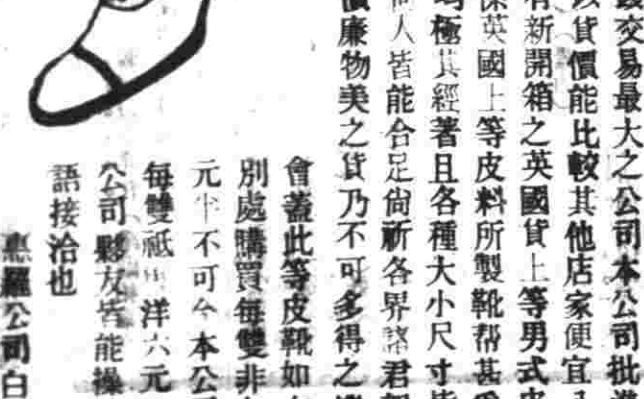 交易最大之公司本公司批
貨價能比較其他店家便宜
有新開箱之英國貨上等男式皮
英國上等皮料所製靴帮甚
極其經著且各種大小尺寸皆
人皆能合足倘祈各界諸君
價廉物美之貨乃不可多得之
會蓋此等皮靴如
別處購買每雙非
元半不可今本公
每雙祇 洋六元
公司夥友皆能操
語接洽也
惠羅公司白